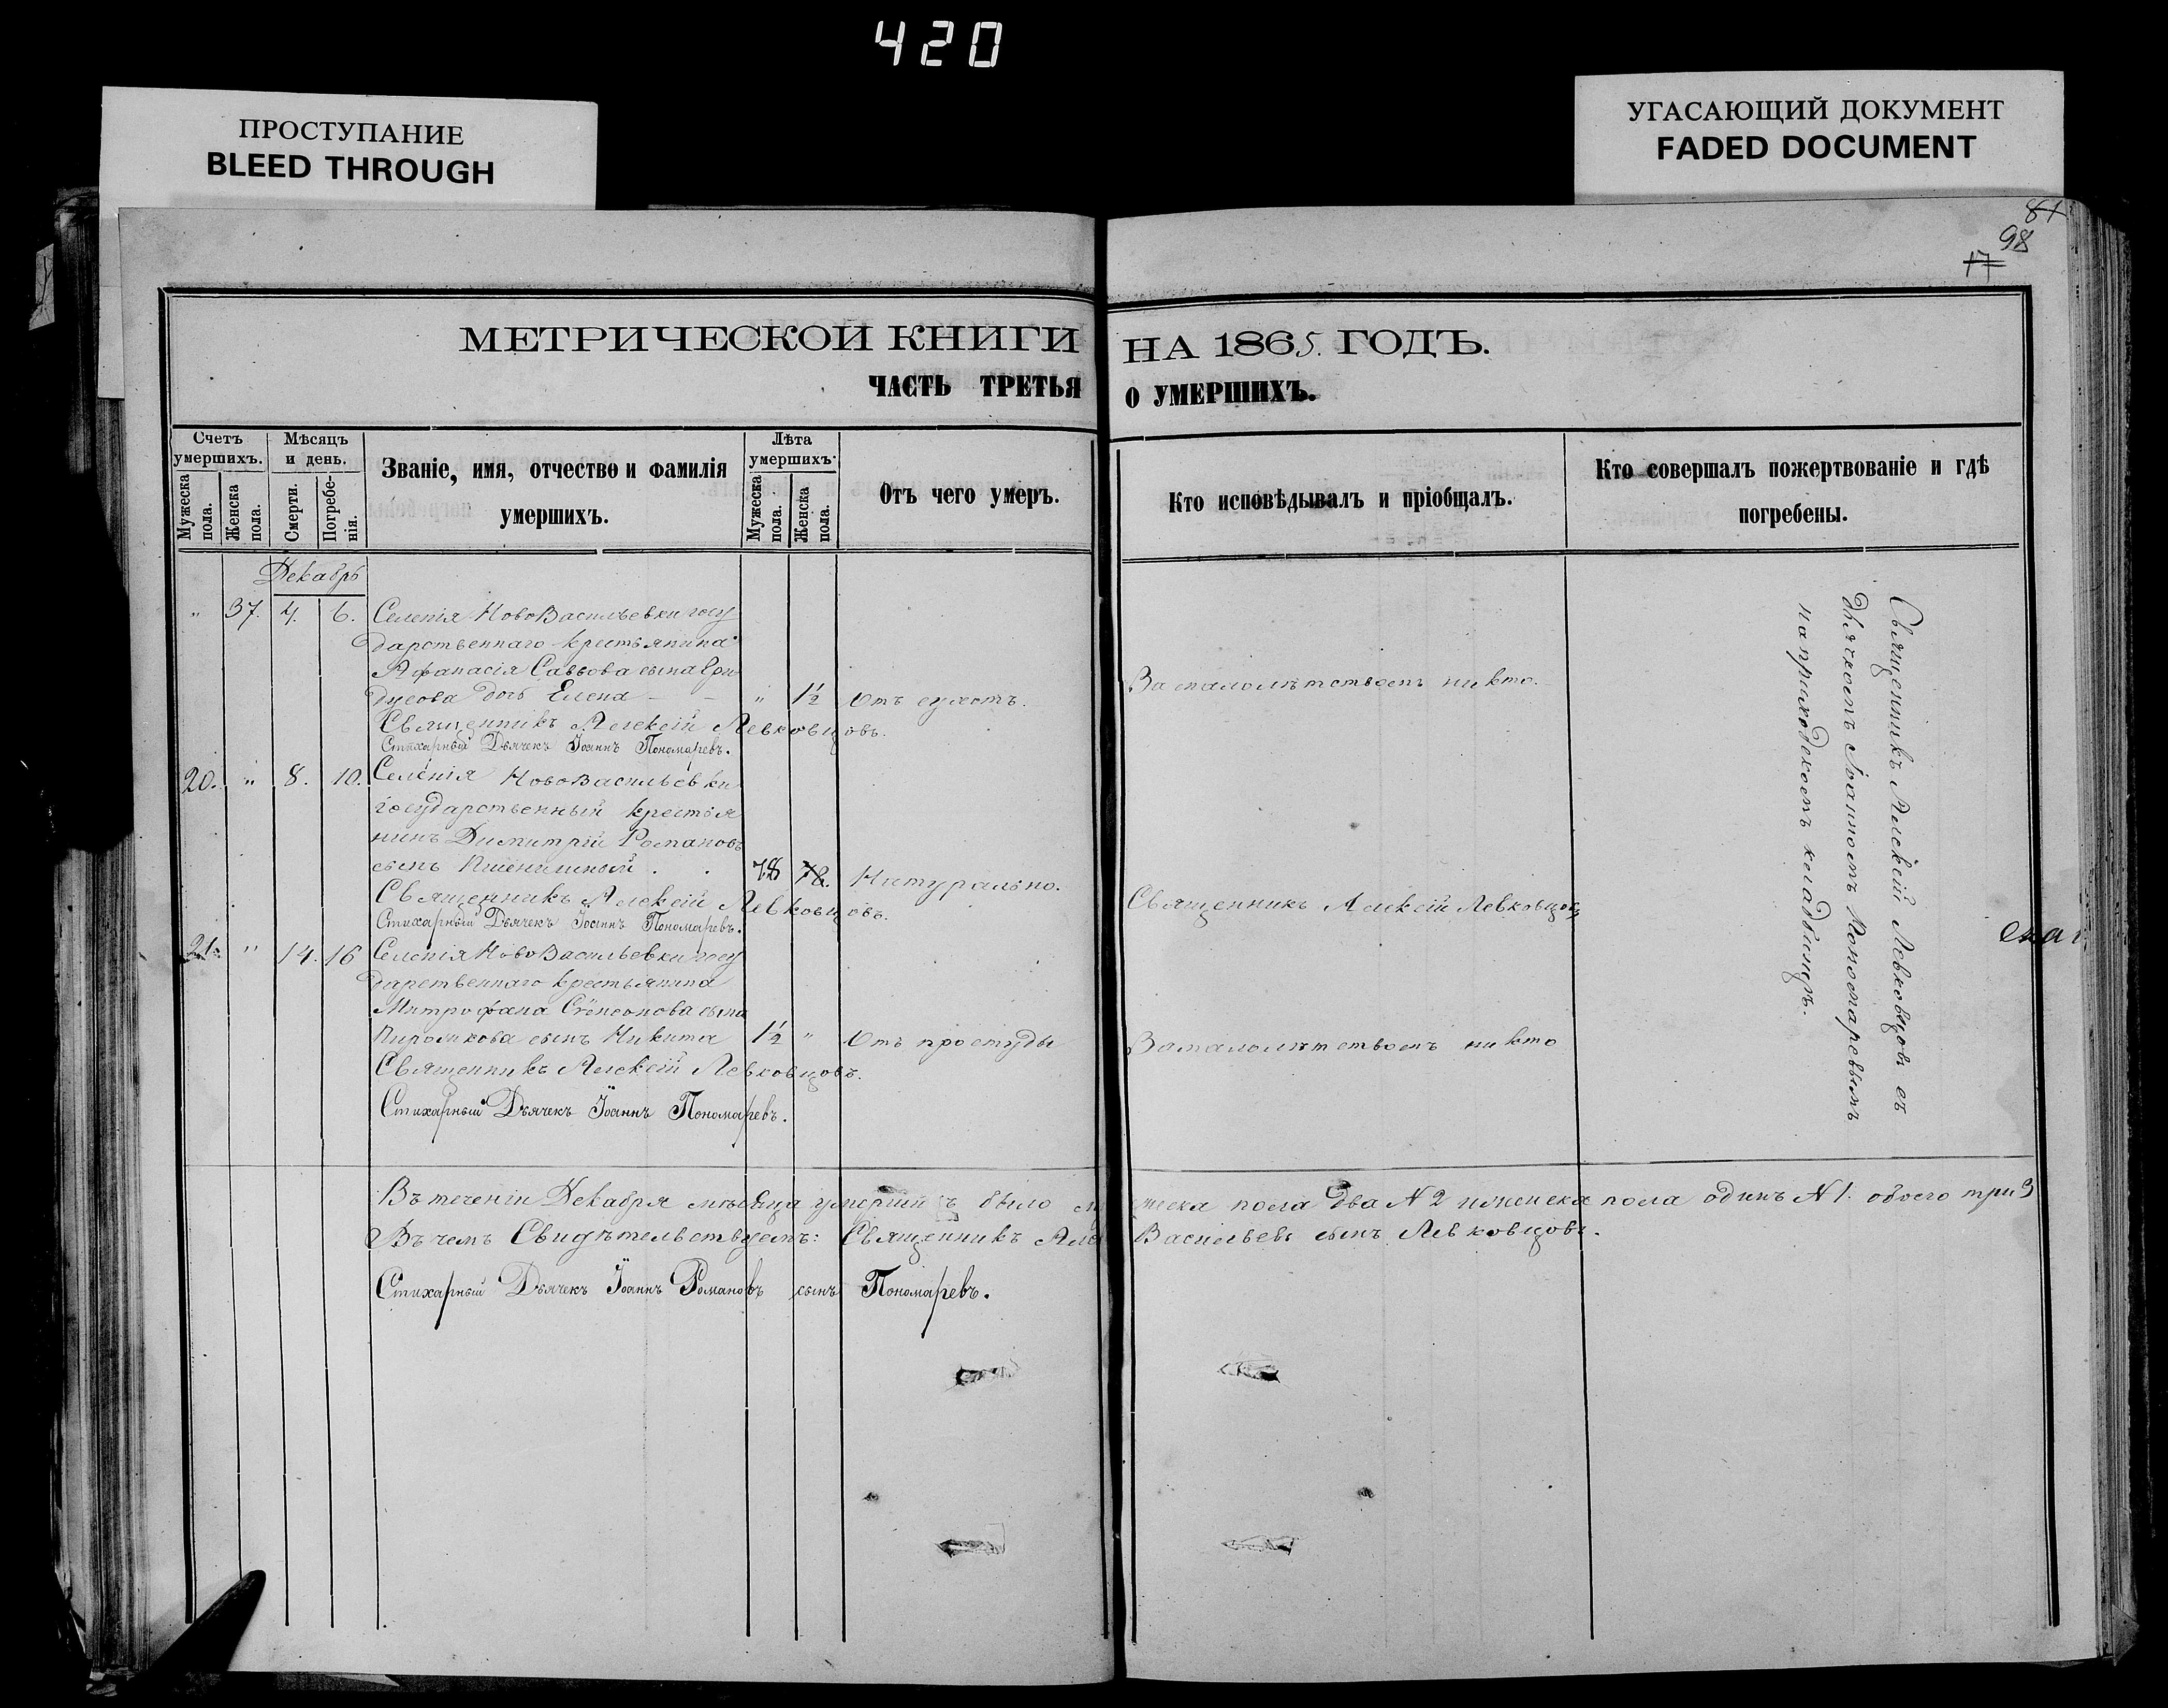 420
ПРОСТУПАНИЕ
BLEED THROUGH
УГАСАЮЩИЙ ДОКУМЕНТ
FADED DOCUMENT
81
98
17
МЕТРИЧЕСКОЙ КНИГИ НА 1865. ГОДЪ.
ЧАСТЬ ТРЕТЬЯ О УМЕРШИХЪ.
Счетъ умершихъ.
Мужеска пола.
Женска пола.
Мѣсяцъ и день.
Смерти.
Погребенія.
Званіе, имя, отчество и фамилія
умершихъ.
Лѣта умершихъ.
Мужеска пола.
Женска пола.
Отъ чего умеръ.
Кто исповѣдывалъ и пріобщалъ.
Кто совершалъ пожертвованіе и гдѣ
погребены.
Декабрь
" 37. 4. 6. Селенія НовоВасильевки госу
дарственнаго крестьянина
Афанасія Саввова сына
дочь Елена — — " 1½ Отъ сухотъ. За малолѣтствомъ никто.
Священникъ Алексій Левковцовъ.
Стихарный Дьячекъ Іоаннъ Пономаревъ.
20. " 8. 10. Селенія НовоВасильевки
государственный крестья
нинъ Димитрій Романовъ
сынъ Пшеничный . . 78 78. Натурально.
Священникъ Алексій Левковцовъ. Священникъ Алексій Левковцовъ
Стихарный Дьячекъ Іоаннъ Пономаревъ.
21. " 14. 16 Селенія НовоВасильевки госу
дарственнаго крестьянина
Митрофана сына
сынъ Никита 1½ " Отъ простуды За малолѣтствомъ никто
Священникъ Алексій Левковцовъ.
Стихарный Дьячекъ Іоаннъ Пономаревъ.
Священникъ Алексій Левковцовъ съ
дьячкомъ Іоанномъ Пономаревымъ
на приходскомъ кладбищѣ.
Въ теченіи Декабря мѣсяца умершихъ было мужеска пола два № 2 и женска пола одинъ № 1. обоего три 3
Въ чемъ Свидѣтельствуемъ: Священникъ Васильевъ сынъ Левковцовъ.
Стихарный Дьячекъ Іоаннъ Романовъ сынъ Пономаревъ.